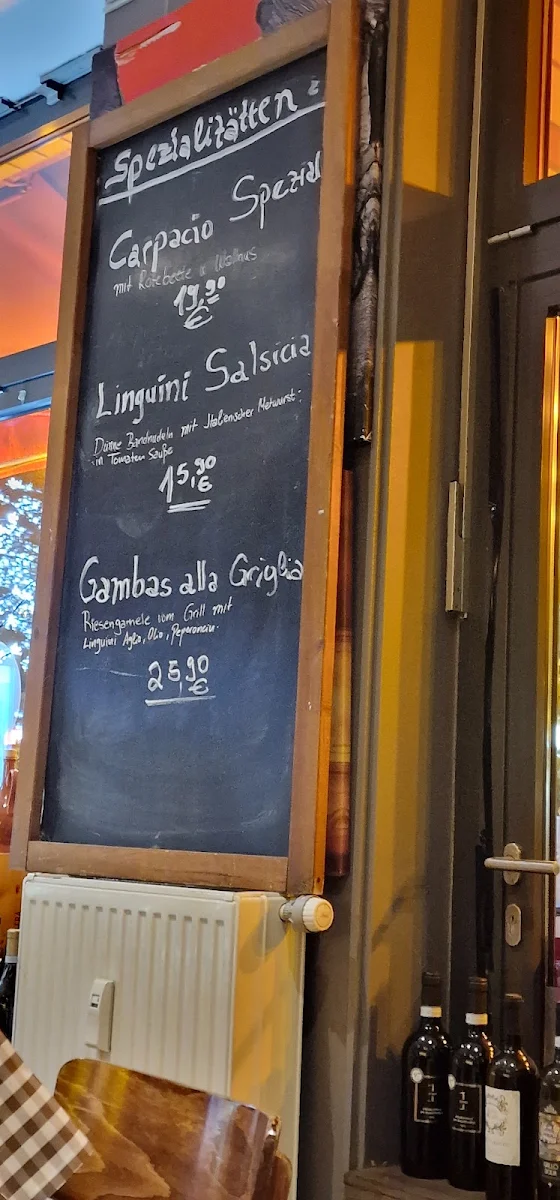 Spezialitätten :
Carpacio Spezial
mit Rotebeete u Wallnus
19,90
€
Linguini Salsicia
Dünne Bandnudeln mit Italienischer Metwurst:
in Tomaten Sauße
15,90
€
Gambas alla Griglia
Riesengarnele vom Grill mit
Linguini Aglio, Olio, Peperoncino.
25,90
€